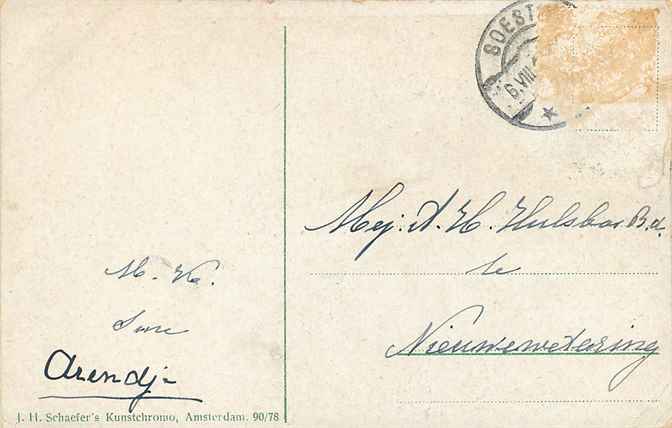 SOEST
6.VIII
Mej. A. H. Hulsbos B.d.
te
Nieuwewetering
M. H.
Arendje
J. H. Schaefer's Kunstchromo, Amsterdam. 90/78